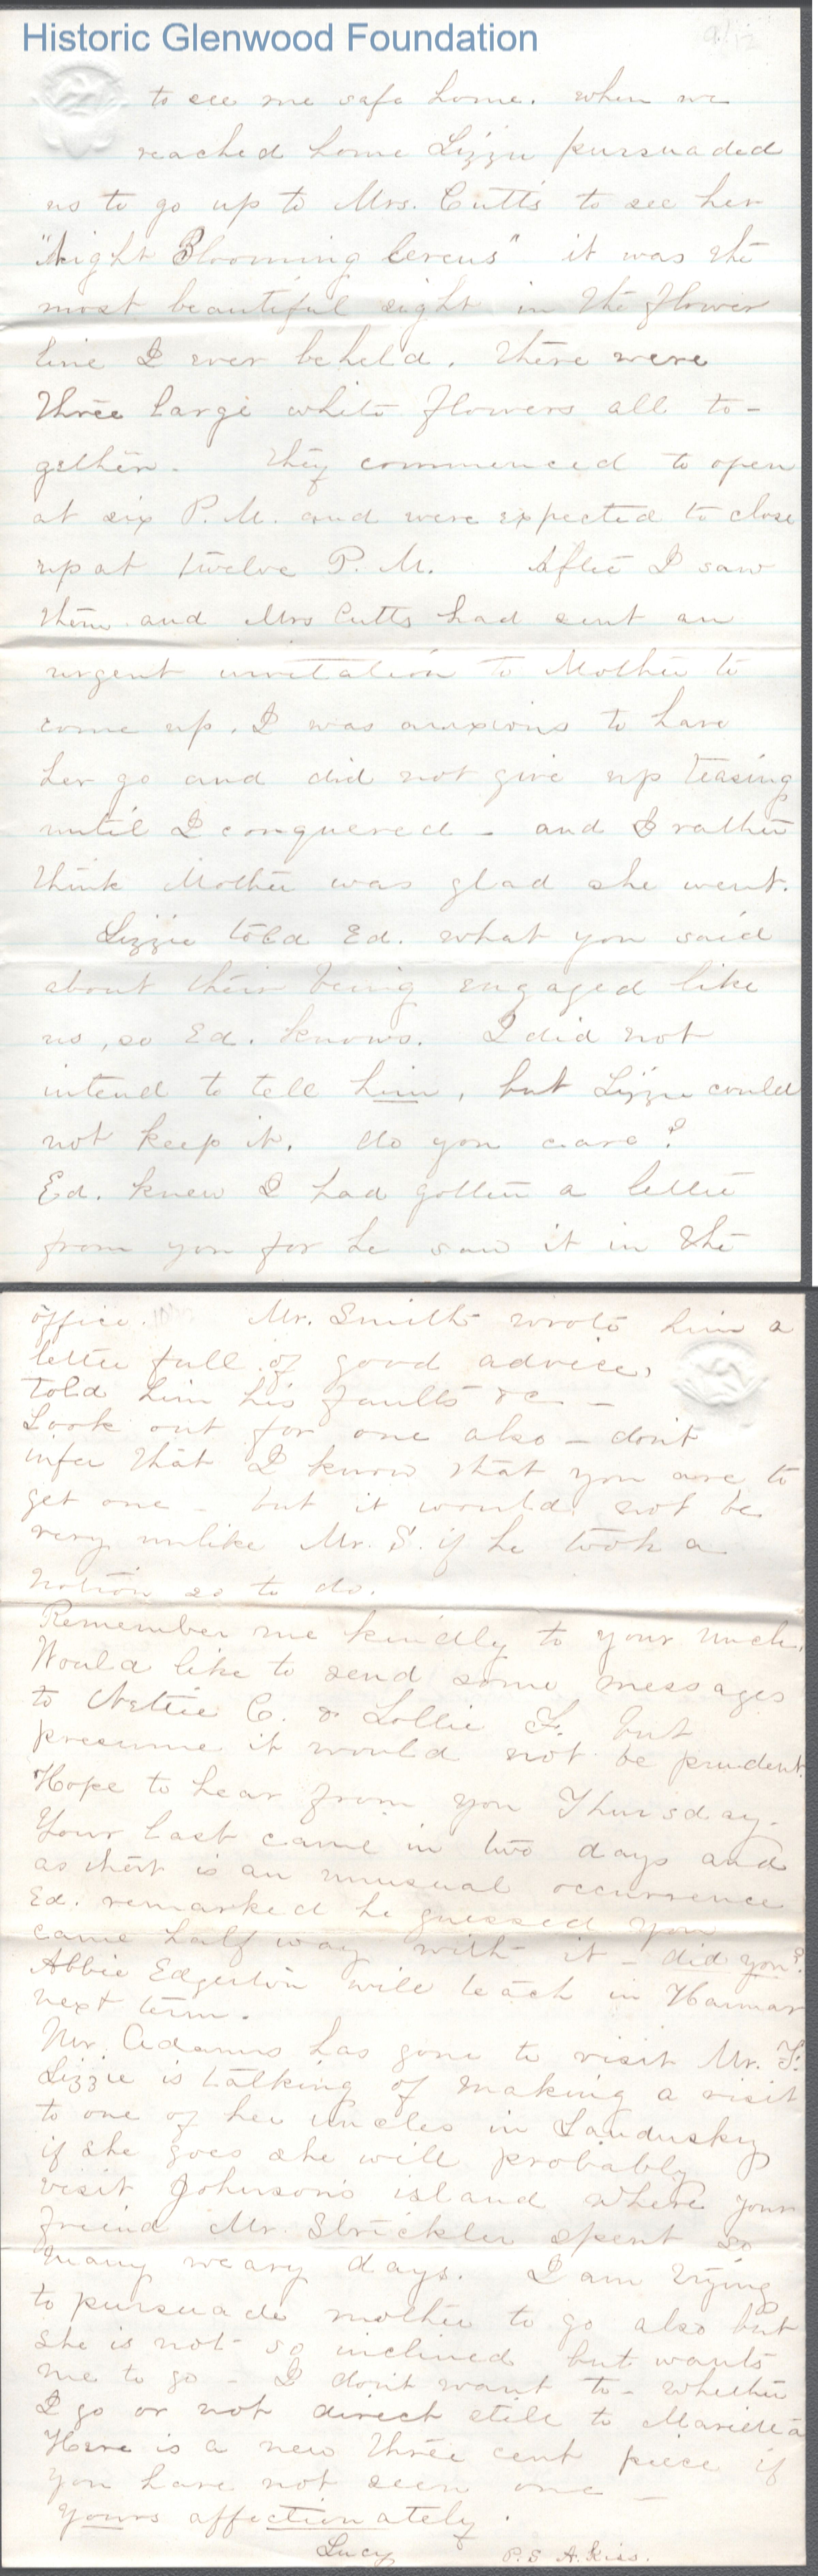 Historic Glenwood Foundation
to see me safe home. when we
reached home Lizzie pursuaded
us to go up to Mrs. Cutts to see her
"Night Blooming Cereus" it was the
most beautiful sight in the flower
line I ever beheld. There were
three large white flowers all to-
gether. They commenced to open
at six P.M. and were expected to close
up at twelve P.M. After I saw
them and Mrs Cutts had sent an
urgent invitation to Mother to
come up. I was anxious to have
her go and did not give up teasing
until I conquered - and I rather
think Mother was glad she went.
Lizzie told Ed. what you said
about their being engaged like
us, so Ed. knows. I did not
intend to tell him, but Lizzie could
not keep it. do you care?
Ed. knew I had gotten a letter
from you for he saw it in the
office. Mr. Smith wrote him a
letter full of good advice,
told him his faults &c -
Look out for one also - don't
infer that I know that you are to
get one - but it would not be
very unlike Mr. S. if he took a
notion so to do.
Remember me kindly to your Uncle.
Would like to send some messages
to Nettie C. & Lollie F. but
presume it would not be prudent.
Hope to hear from you Thursday.
Your last came in two days and
as that is an unusual occurrence
Ed. remarked he guessed you
came half way with it - did you?
Abbie Edgerton will teach in Harmar
next term.
Mr. Adams has gone to visit Mr. F.
Lizzie is talking of making a visit
to one of her uncles in Sandusky
if she goes she will probably
visit Johnson's island where your
friend Mr. Strickler spent so
many weary days. I am trying
to pursuade mother to go also but
she is not so inclined but wants
me to go - I don't want to - whether
I go or not direct still to Marietta
Here is a new three cent piece if
you have not seen one -
Yours affectionately.
Lucy P.S A. Kiss.